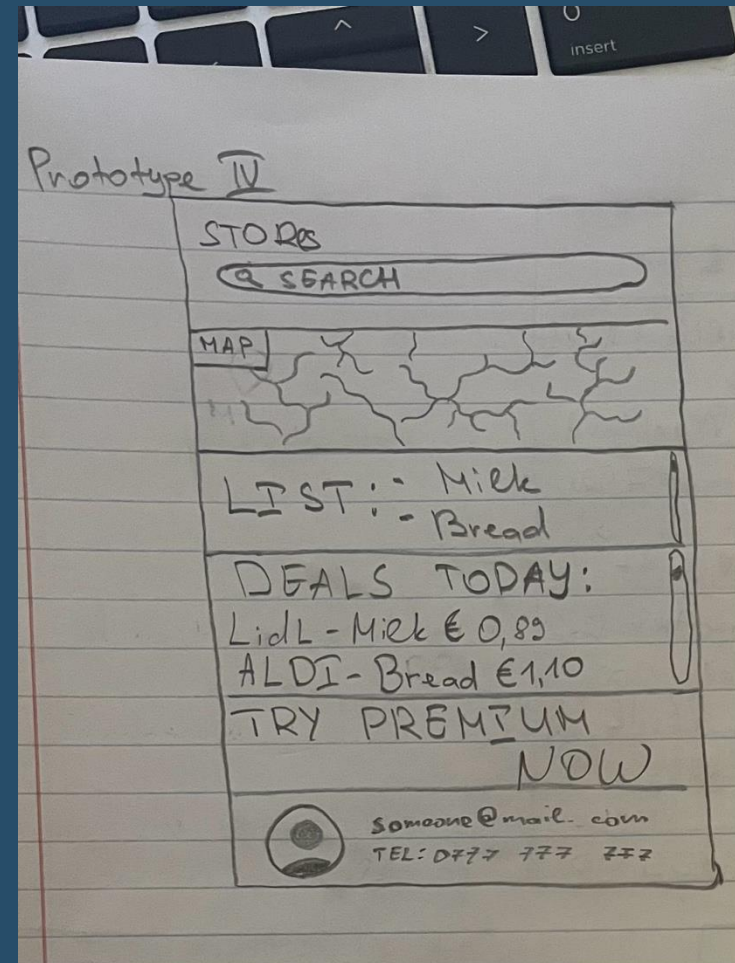 insert
Prototype IV
STORes
SEARCH
MAP
LIST: - Milk
- Bread
DEALS TODAY:
LidL - Milk € 0,89
ALDI - Bread €1,10
TRY PREMIUM
NOW
someone@mail.com
TEL: 0777 777 777